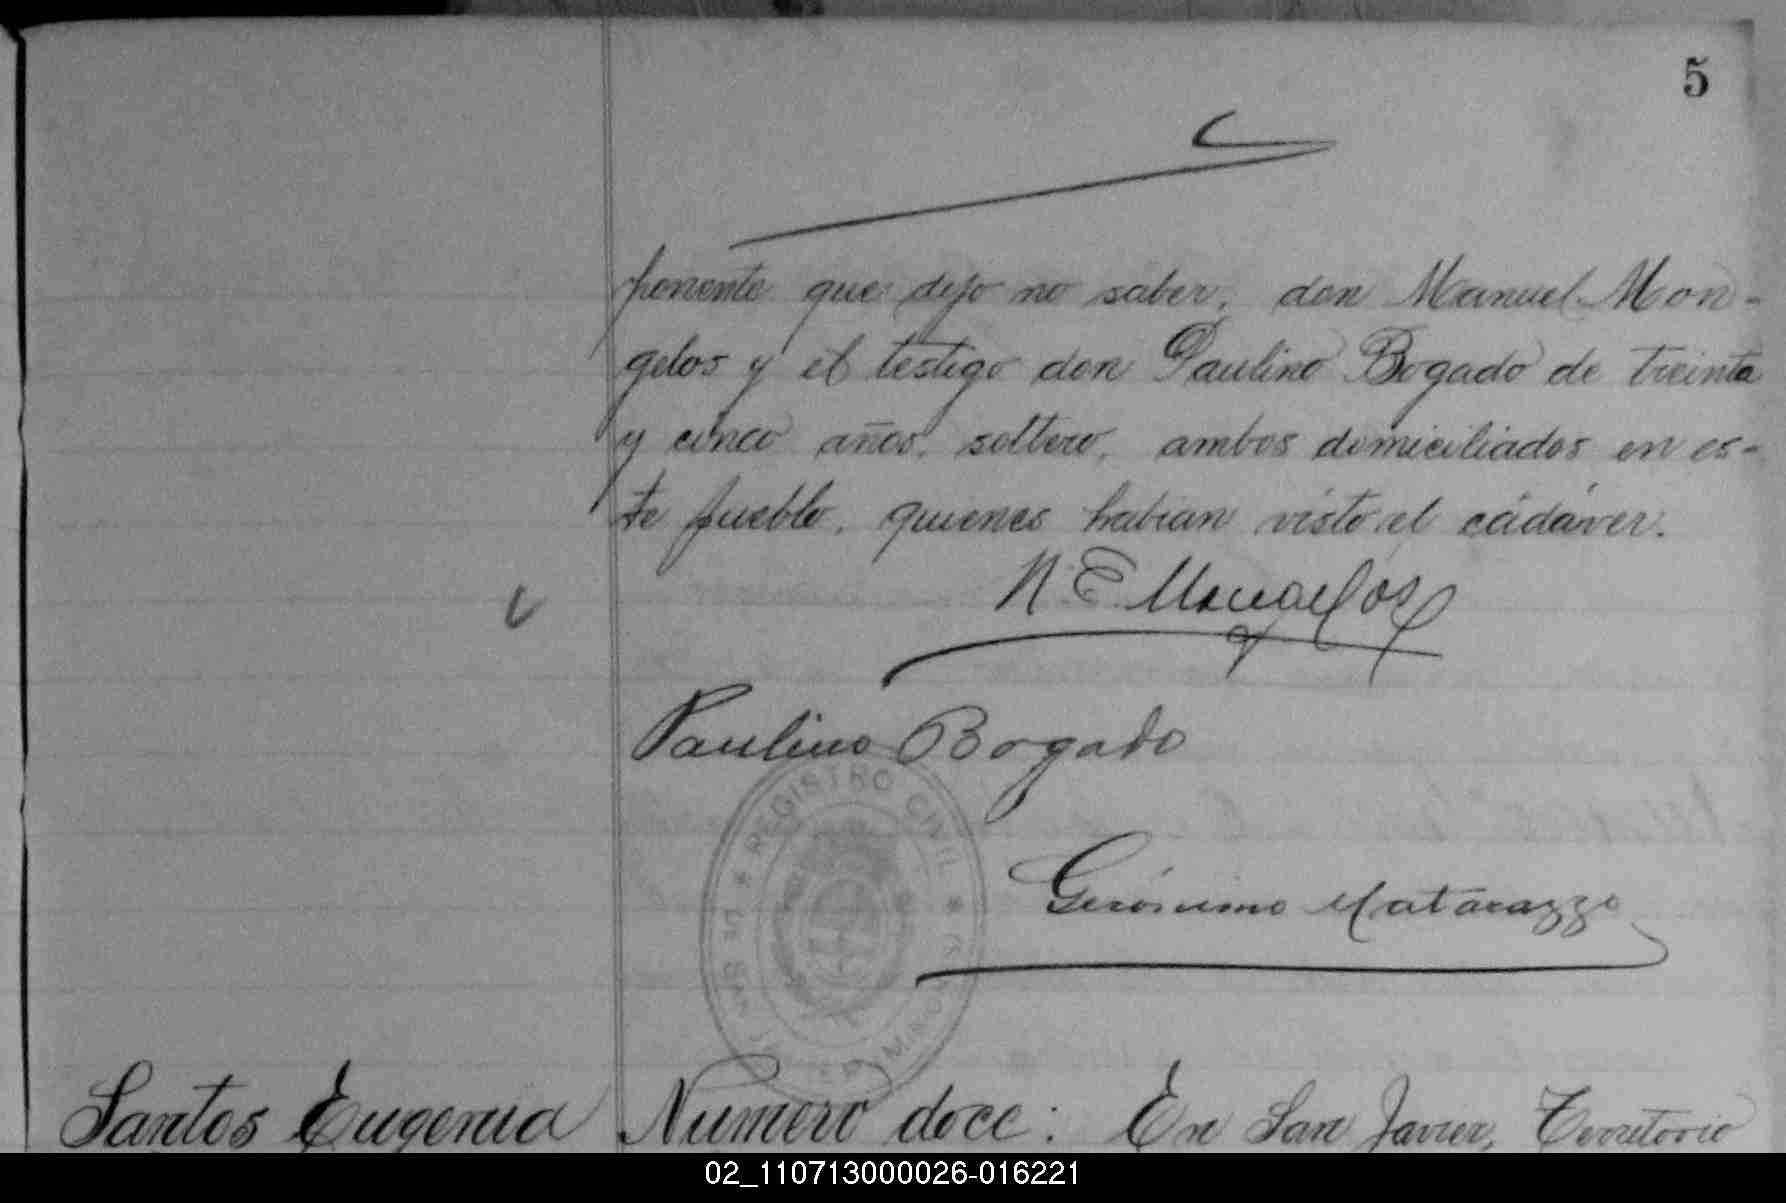 5
ponente que dijo no saber, don Manuel Mon-
gelos y el testigo don Paulino Bogado de treinta
y cinco años, soltero, ambos domiciliados en es-
te pueblo, quienes habian visto el cádáver.
M. E. Mongelos
Paulino Bogado
REGISTRO CIVIL * MISIONES
Gerónimo Matarazzo
Santos Eugenia
Numero doce: En San Javier, Territorio
02_110713000026-016221